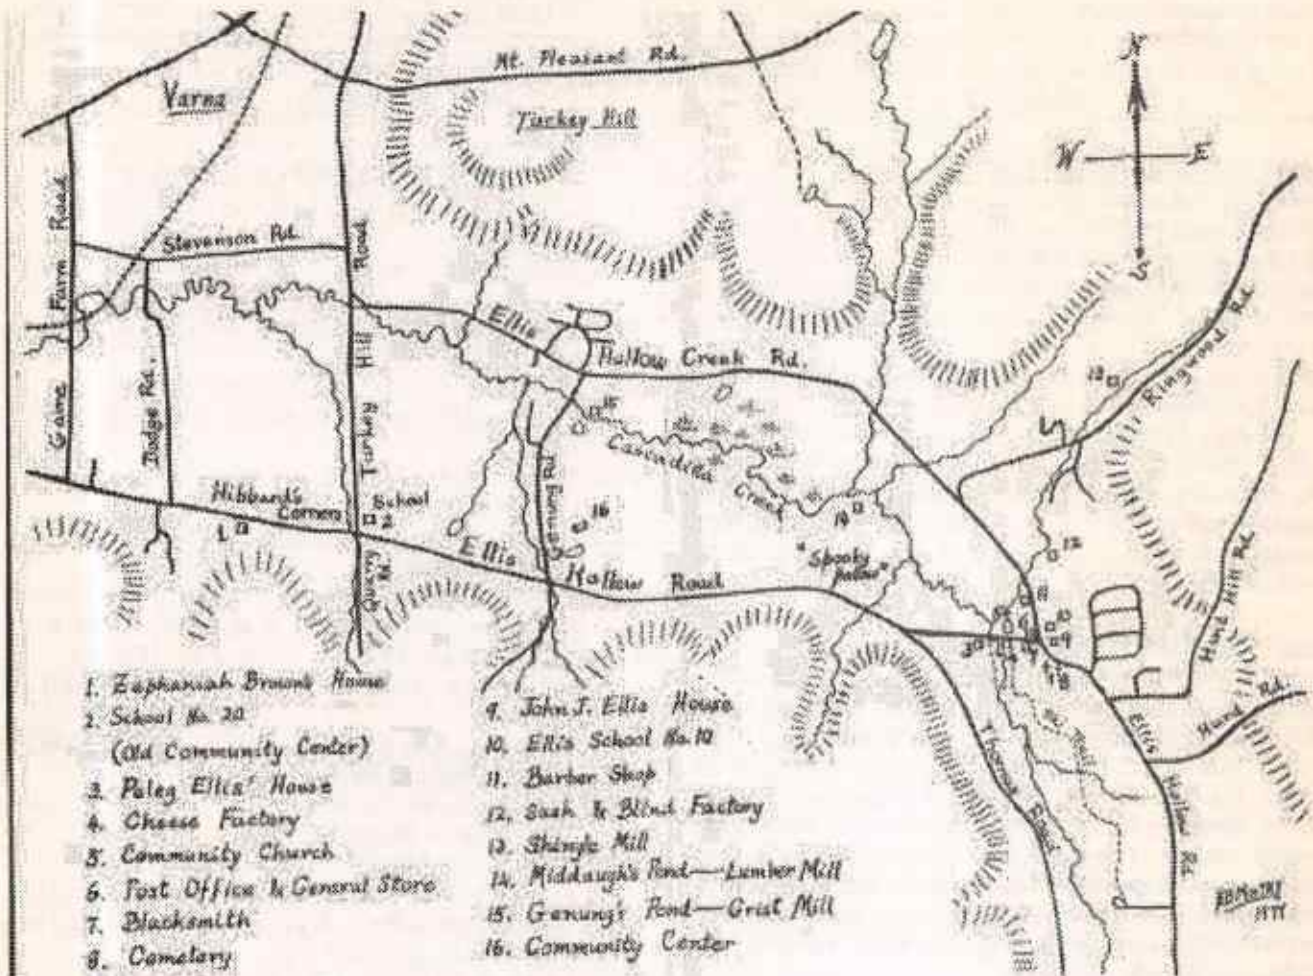 Mt. Pleasant Rd.
Varna
Turkey Hill
N
W E
S
Stevenson Rd.
Game Farm Road
Dodge Rd.
Turkey Hill Road
Ellis Hollow Creek Rd.
Ringwood Rd.
13
15
Cascadilla Creek
Genung Rd.
Hibbard's
Corners
School
1
2
16
14
"Spooky
Hollow"
12
Hund Hill Rd.
Ellis Hollow Road
Quarry Rd.
11
10
9
3
8
Hund Rd.
Thomas Road
Ellis Hollow Rd
1. Zephaniah Brown's House
2. School No. 20
(Old Community Center)
3. Peleg Ellis' House
4. Cheese Factory
5. Community Church
6. Post Office & General Store
7. Blacksmith
8. Cemetery
9. John J. Ellis House
10. Ellis School No. 10
11. Barber Shop
12. Sash & Blind Factory
13. Shingle Mill
14. Middaugh's Pond—Lumber Mill
15. Genung's Pond—Grist Mill
16. Community Center